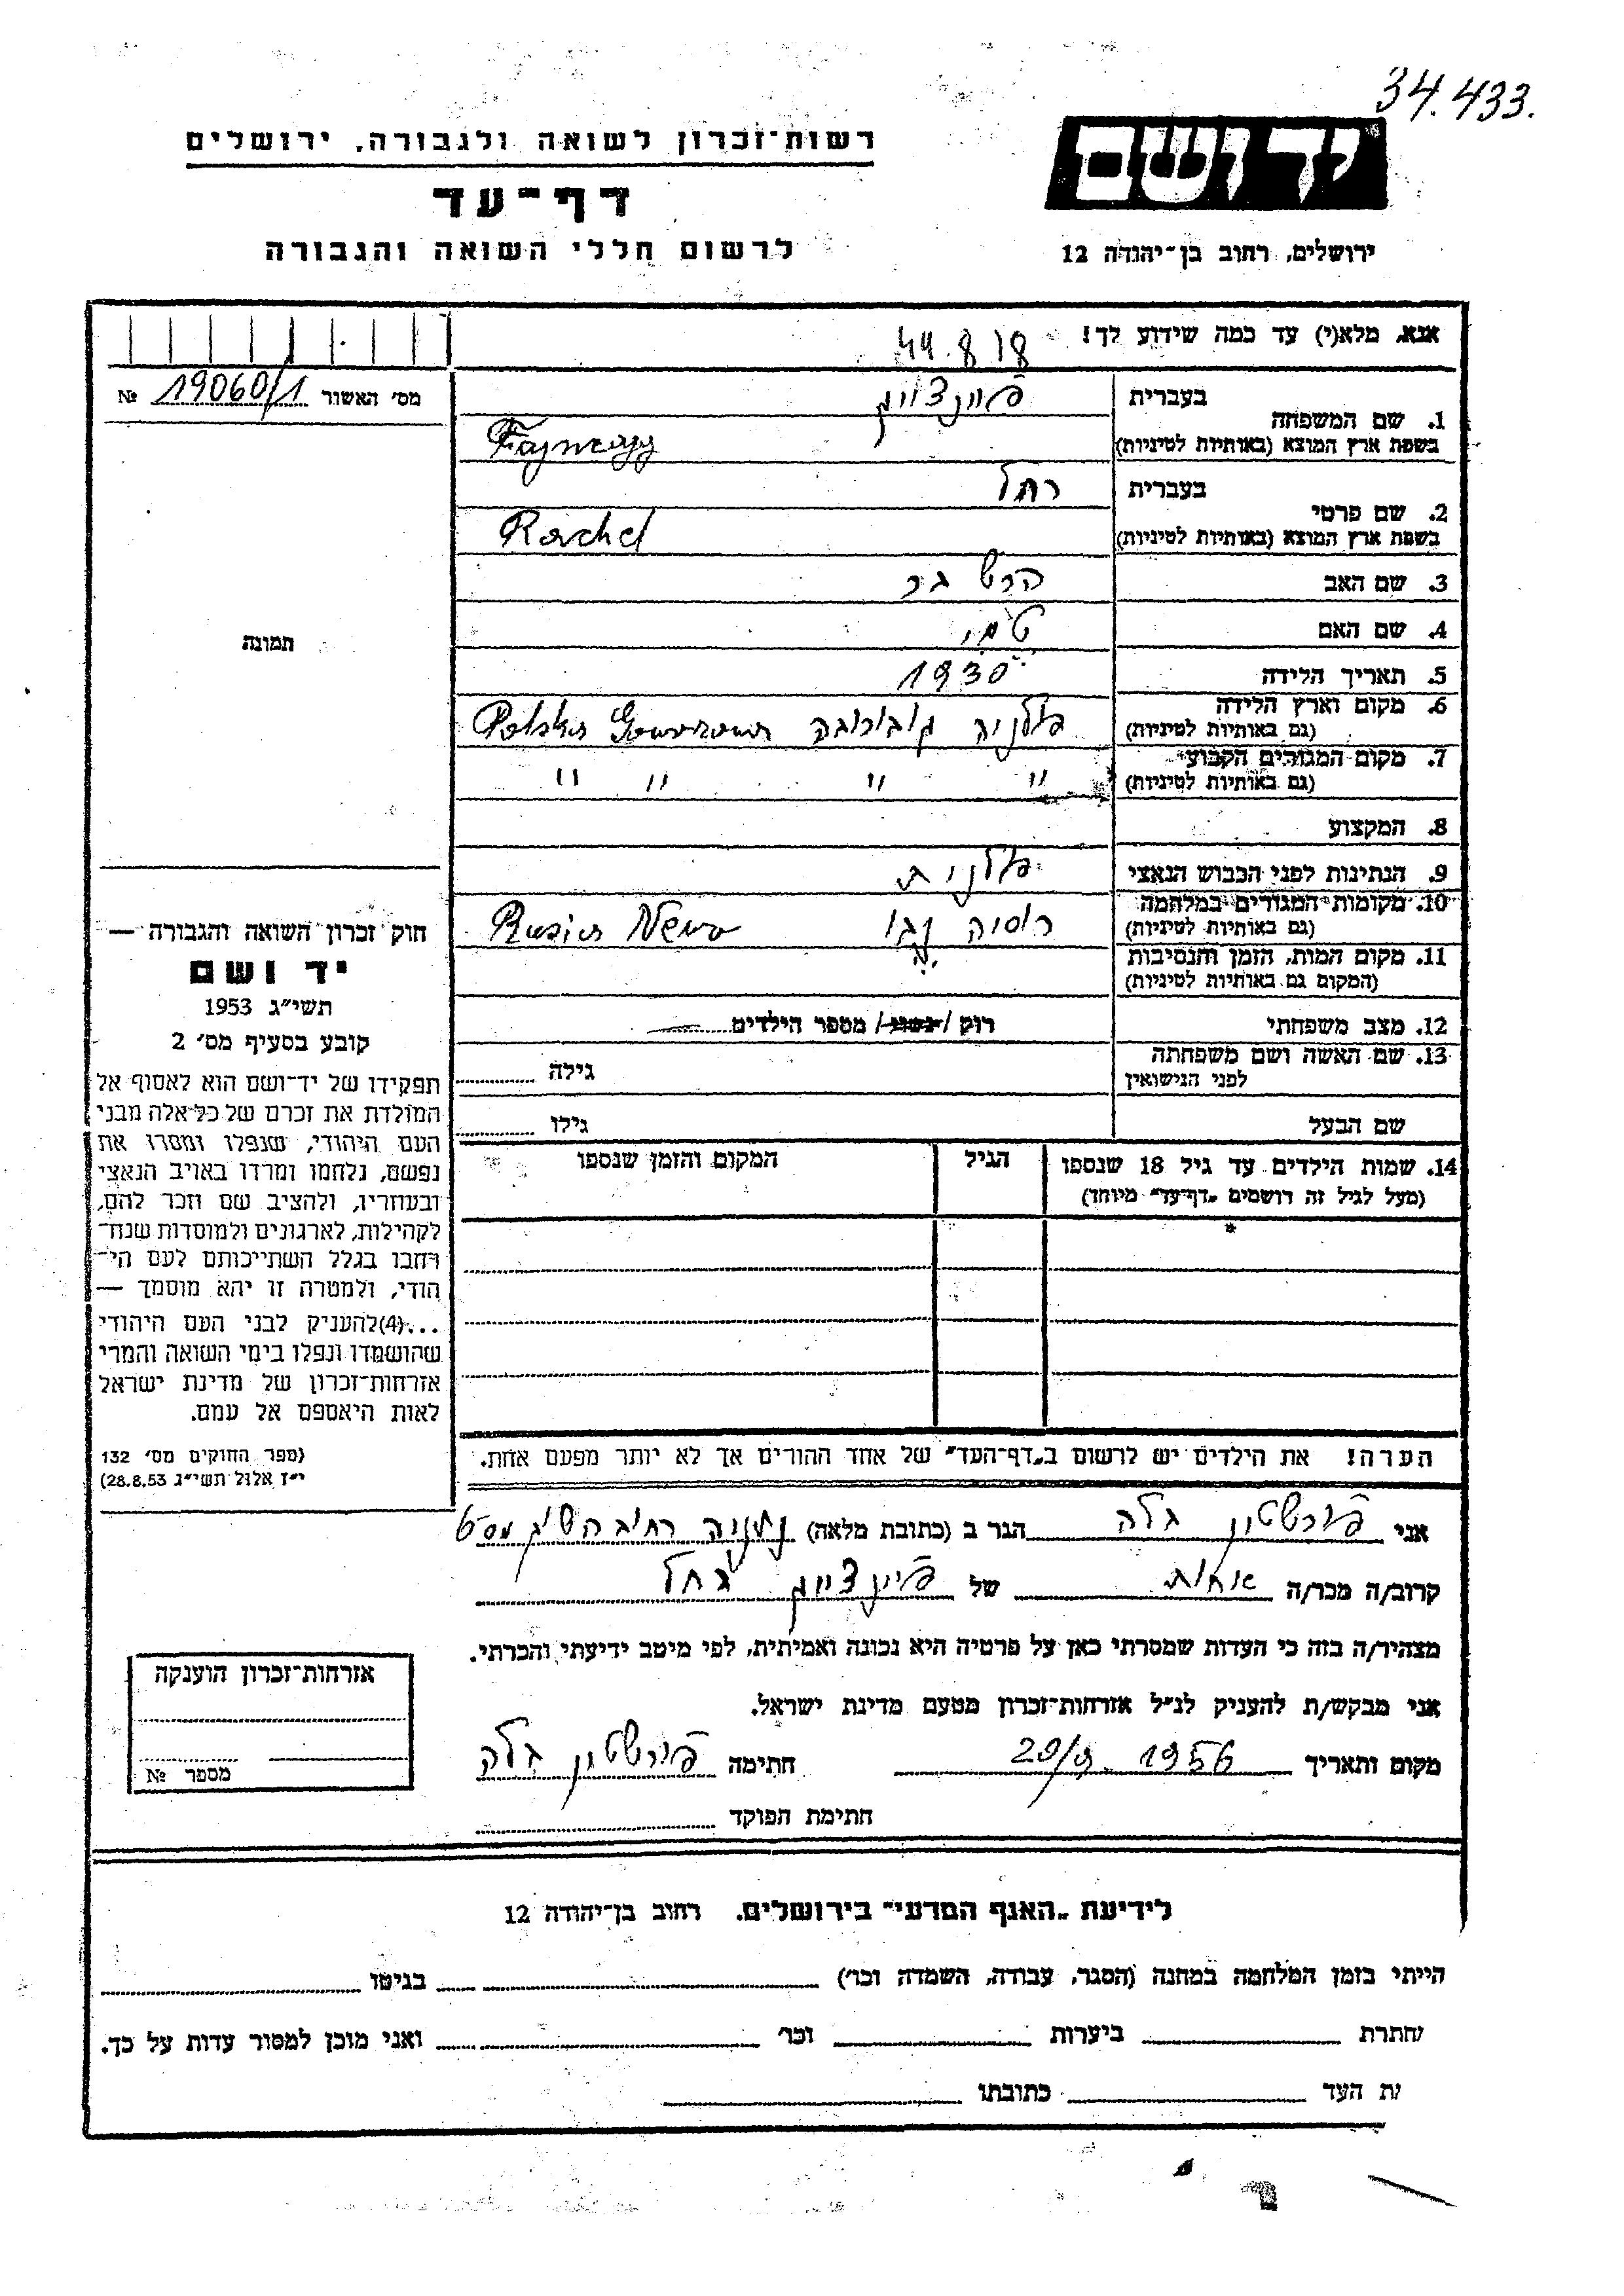 34.433.
רשות־זכרון לשואה ולגבורה, ירושלים
יד ושם
דף־עד
לרשום חללי השואה והגבורה
ירושלים, רחוב בן־יהודה 12
אנא, מלא(י) עד כמה שידוע לך!
44.8 18
מס׳ האשור 19060/1 №
1. שם המשפחה
בעברית
בשפת ארץ המוצא (באותיות לטיניות)
2. שם פרטי
בעברית רחל
בשפת ארץ המוצא (באותיות לטיניות) Rachel
3. שם האב הרש בר
4. שם האם
5. תאריך הלידה 1930
6. מקום וארץ הלידה
(גם באותיות לטיניות) פולניה Polska
7. מקום המגורים הקבוע
(גם באותיות לטיניות) " " " "
8. המקצוע
9. הנתינות לפני הכבוש הנאצי פולנית
10. מקומות המגורים במלחמה
(גם באותיות לטיניות) רוסיה
11. מקום המות, הזמן והנסיבות
(המקום גם באותיות לטיניות)
12. מצב משפחתי רוק / נשוי / מספר הילדים
13. שם האשה ושם משפחתה
לפני הנישואין
גילה
שם הבעל גילו
14. שמות הילדים עד גיל 18 שנספו
(מעל לגיל זה רושמים „דף־עד״ מיוחד)
הגיל
המקום והזמן שנספו
תמונה
חוק זכרון השואה והגבורה —
יד ושם
תשי״ג 1953
קובע בסעיף מס׳ 2
תפקידו של יד־ושם הוא לאסוף אל
המולדת את זכרם של כל־אלה מבני
העם היהודי, שנפלו ומסרו את
נפשם, נלחמו ומרדו באויב הנאצי
ובעוזריו, ולהציב שם וזכר להם,
לקהילות, לארגונים ולמוסדות שנח־
רחבו בגלל השתייכותם לעם הי־
הודי, ולמטרה זו יהא מוסמך —
...(4)להעניק לבני העם היהודי
שהושמדו ונפלו בימי השואה והמרי
אזרחות־זכרון של מדינת ישראל
לאות היאספם אל עמם.
(ספר החוקים מס׳ 132
י״ז אלול תשי״ג 28.8.53)
הערה! את הילדים יש לרשום ב„דף־העד״ של אחד ההורים אך לא יותר מפעם אחת.
אני פירשטון גלה הגר ב (כתובת מלאה) נתניה רחוב
קרוב/ה מכר/ה אחות של פיינצייג רחל
מצהיר/ה בזה כי העדות שמסרתי כאן על פרטיה היא נכונה ואמיתית, לפי מיטב ידיעתי והכרתי.
אני מבקש/ת להעניק לנ״ל אזרחות־זכרון מטעם מדינת ישראל.
מקום ותאריך 20/9. 1956 חתימה פירשטון גלה
חתימת הפוקד
אזרחות־זכרון הוענקה
מספר №
לידיעת „האגף המדעי״ בירושלים, רחוב בן־יהודה 12
הייתי בזמן המלחמה במחנה (הסגר, עבודה, השמדה וכו׳) בגיטו
חתרת ביערות וכו׳ ואני מוכן למסור עדות על כך.
ת העד כתובתו